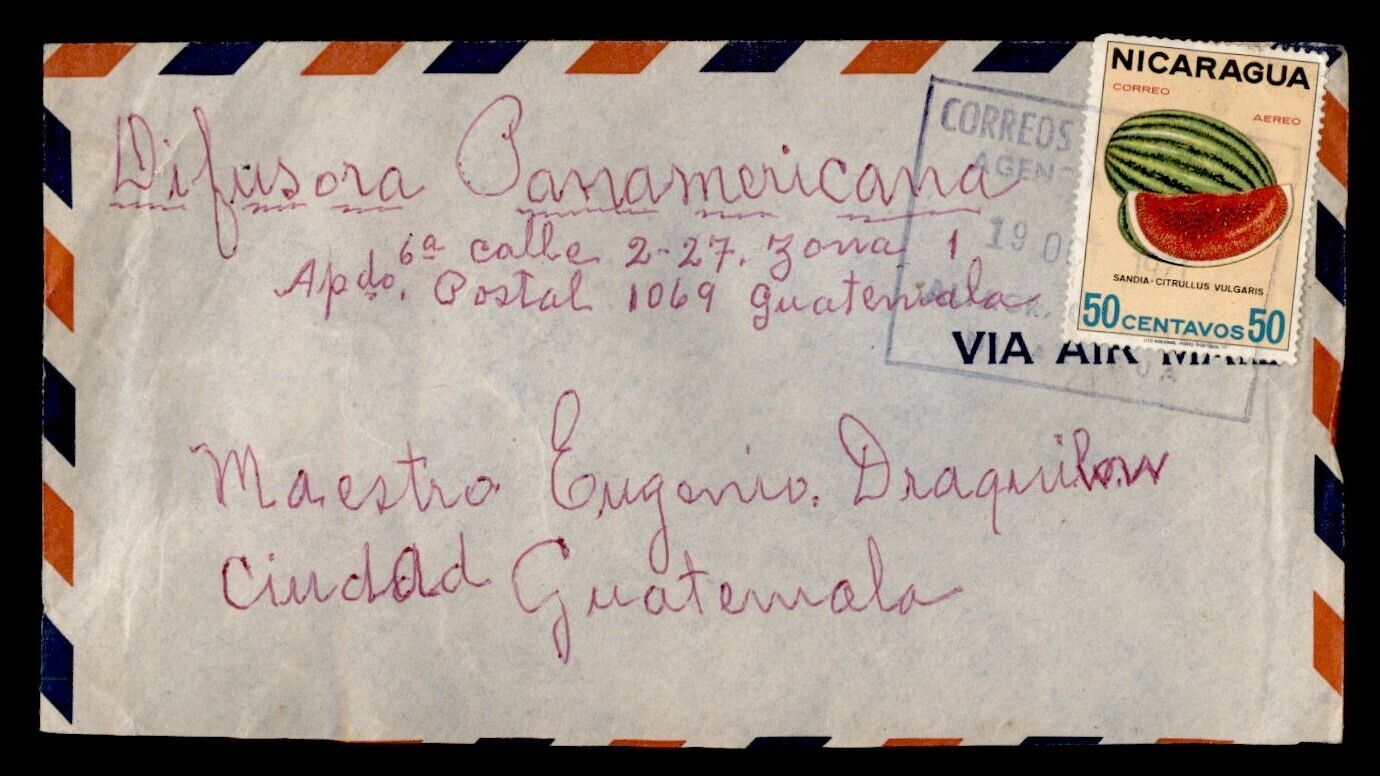 Difusora Panamericana
6ª calle 2-27. Zona 1
Apdo. Postal 1069 Guatemala
Maestro Eugenio. Draquilow
Ciudad Guatemala
VIA AIR MAIL
NICARAGUA
CORREO
AEREO
SANDIA-CITRULLUS VULGARIS
50 CENTAVOS 50
CORREOS
AGEN
19